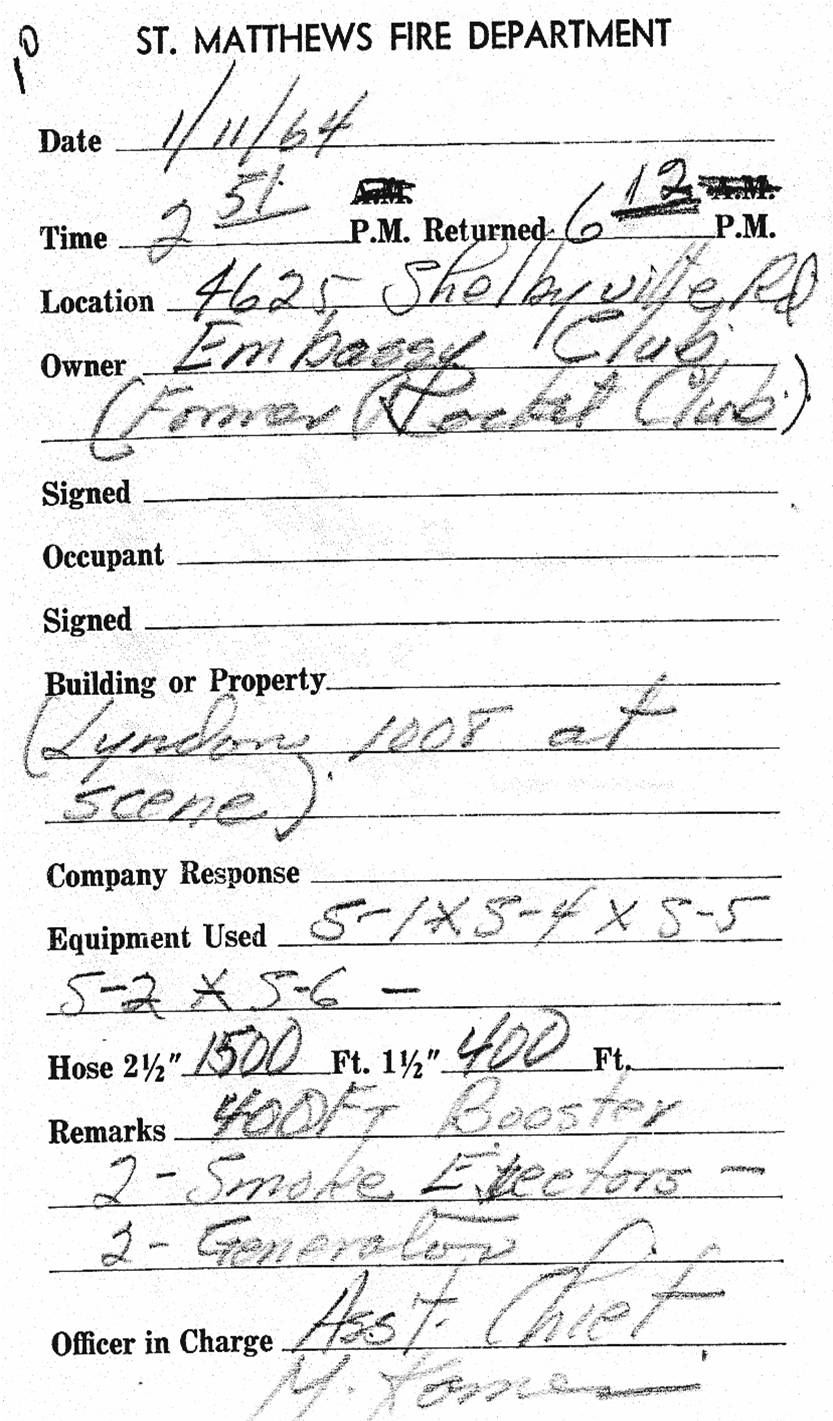 ST. MATTHEWS FIRE DEPARTMENT
Date 1/11/64
Time 2 51 A.M. P.M. Returned 6 12 A.M. P.M.
Location 4625 Shelbyville Rd
Owner Embassy Club
(Former Rocket Club)
Signed
Occupant
Signed
Building or Property
(Lyndon 1008 at
scene)
Company Response
Equipment Used 5-1 X 5-4 X 5-5
5-2 X 5-6 -
Hose 2½" 1500 Ft. 1½" 400 Ft.
Remarks 400 FT Booster
2 - Smoke Ejectors -
2 - Generators
Officer in Charge Asst. Chief
M.